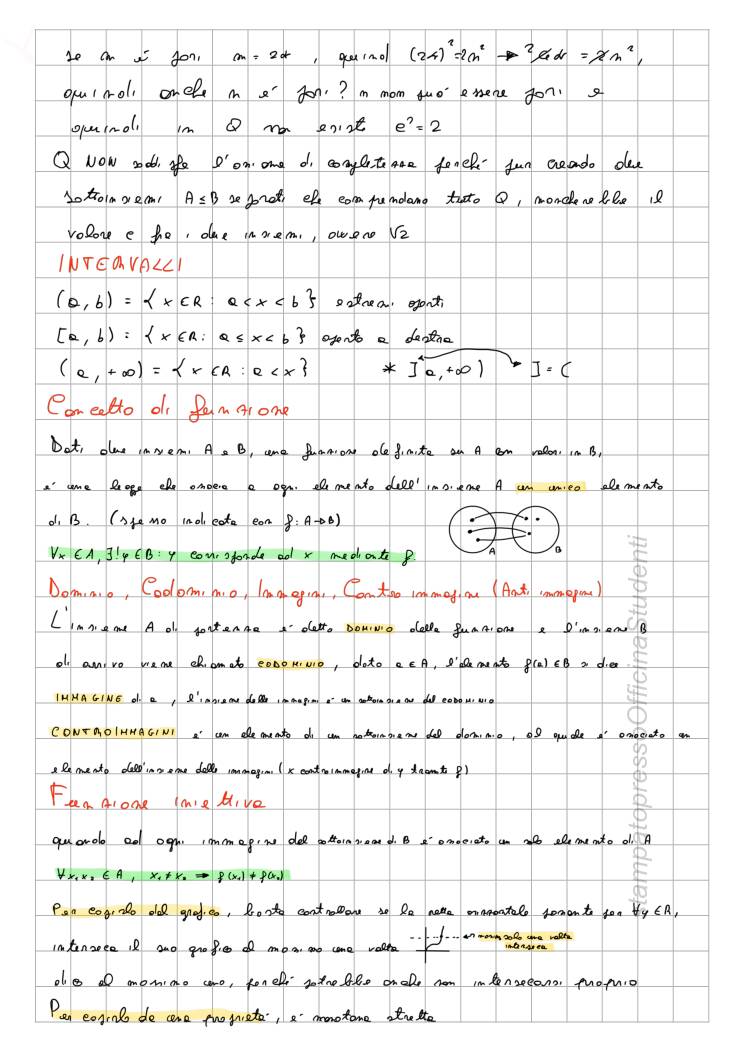 se m è pari m = 2d , quindi (2d)² = 2n² → ²4d² = 2n²,
quindi anche n è pari? n non può essere pari e
quindi in Q non esiste c² = 2
Q NON soddisfa l'assioma di completezza perché pur creando due
sottoinsiemi A ≤ B separati che comprendano tutto Q, mancherebbe il
valore c fra i due insiemi, ovvero √2
INTERVALLI
(a, b) = { x ∈ R : a < x < b } estremi aperti
[a, b) = { x ∈ R : a ≤ x < b } aperto a destra
(a, +∞) = { x ∈ R : a < x } * ]a, +∞) ] = (
Concetto di funzione
Dati due insiemi A e B, una funzione definita su A con valori in B,
è una legge che associa a ogni elemento dell'insieme A un unico elemento
di B. (spesso indicata con f: A→B)
A B
∀x ∈ A, ∃! y ∈ B : y corrisponde ad x mediante f
Dominio, Codominio, Immagini, Contro immagine (Anti immagine)
L'insieme A di partenza è detto DOMINIO della funzione e l'insieme B
di arrivo viene chiamato CODOMINIO, dato a ∈ A, l'elemento f(a) ∈ B si dice
IMMAGINE di a, l'insieme delle immagini è un sottoinsieme del codominio
CONTROIMMAGINI è un elemento di un sottoinsieme del dominio, al quale è associato un
elemento dell'insieme delle immagini (x controimmagine di y tramite f)
Funzione iniettiva
quando ad ogni immagine del sottoinsieme di B è associato un solo elemento di A
∀x₁x₂ ∈ A, x₁ ≠ x₂ ⇒ f(x₁) ≠ f(x₂)
Per capirlo dal grafico, basta controllare se la retta orizzontale passante per ∀y ∈ R,
interseca il suo grafico al massimo una volta
solo una volta
interseca
dico al massimo uno, perché potrebbe anche non intersecarsi proprio
Per capirlo da una proprietà, è monotona stretta
StampatopressoOfficinaStudenti